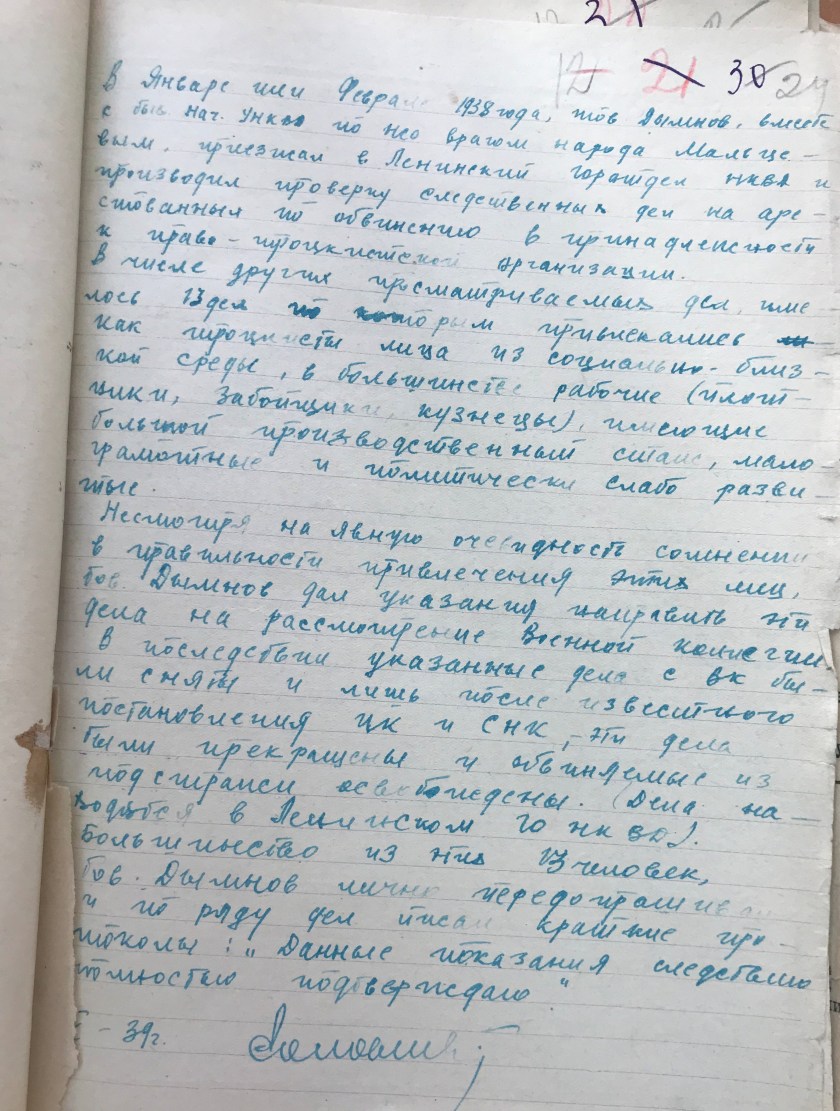 12 21 30 24
В Январе или Феврале 1938 года, тов Дымнов, вместе
с быв. нач. УНКВД по НСО врагом народа Мальце-
вым, приезжал в Ленинский горотдел НКВД и
производил проверку следственных дел на аре-
стованных по обвинению в принадлежности
к право-троцкистской организации.
В числе других просматриваемых дел, име
лось 13 дел по которым привлекались
как троцкисты лица из социально-близ-
кой среды, в большинстве рабочие (плот-
ники, забойщики, кузнецы), имеющие
большой производственный стаж, мало
грамотные и политически слабо разви
тые.
Несмотря на явную очевидность сомнений
в правильности привлечения этих лиц,
тов. Дымнов дал указания направить эти
дела на рассмотрение Военной коллегии
В последствии указанные дела с ВК бы-
ли сняты и лишь после известного
постановления ЦК и СНК, - эти дела
были прекращены и обвиняемые из
под стражи освобождены. (Дела на-
ходятся в Ленинском ГО НКВД).
Большинство из этих 13 человек,
тов. Дымнов лично передопрашивал
и по ряду дел писал краткие про-
токолы: „Данные показания следствию
полностью подтверждаю"
- 39г.